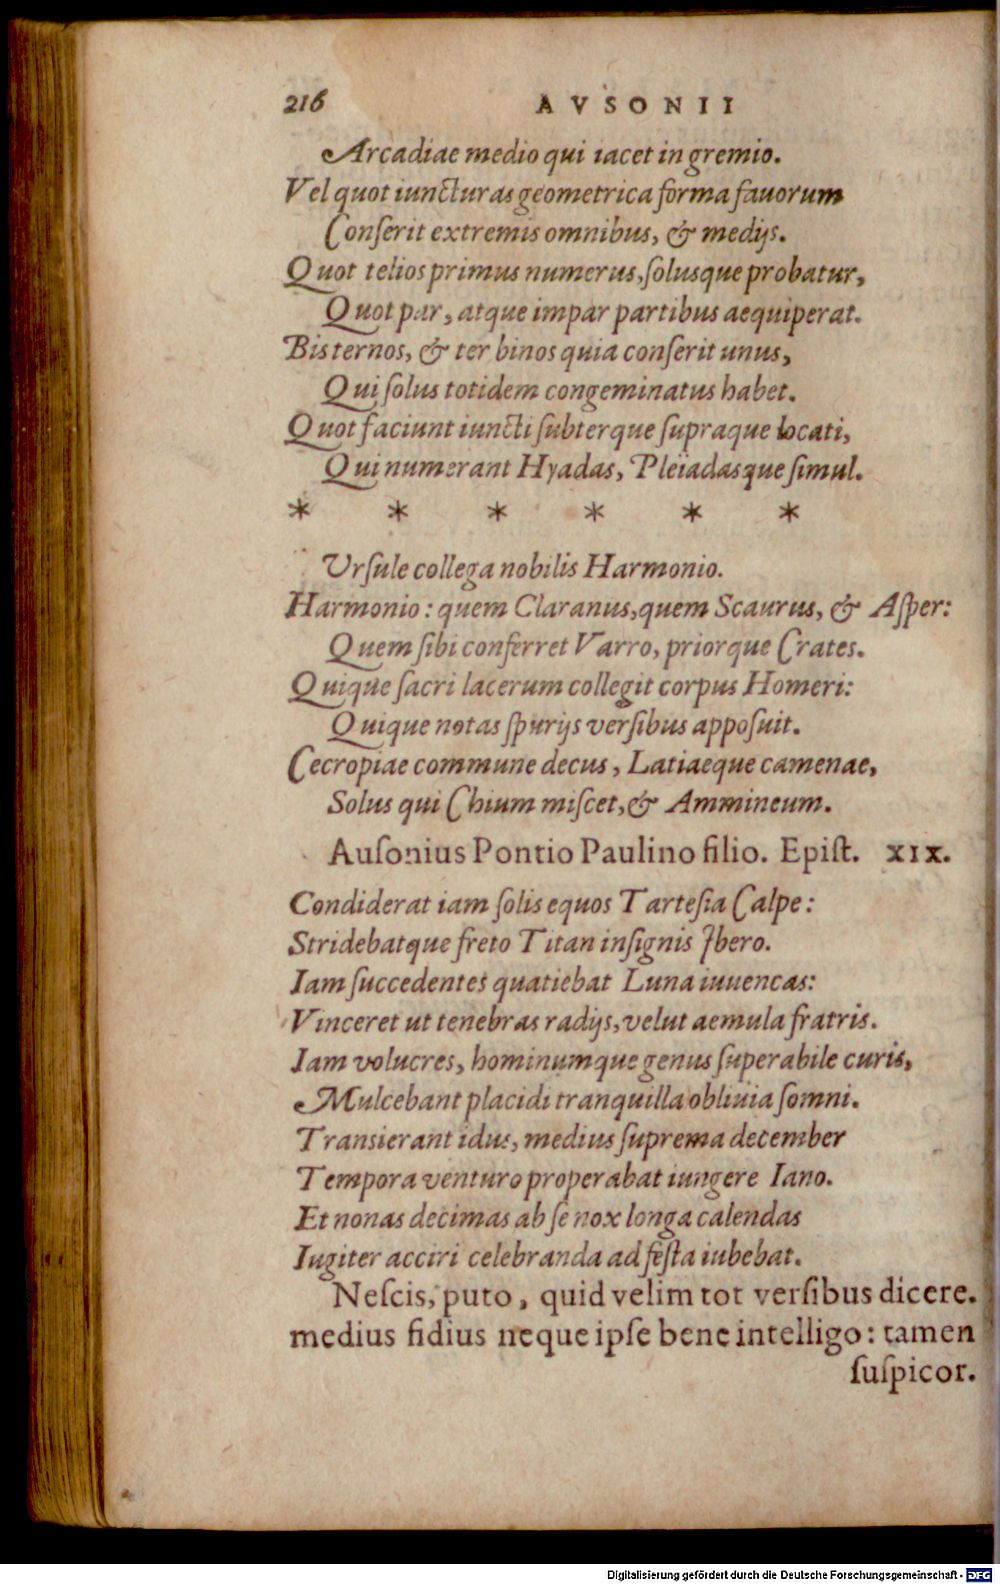 216 AVSONII
Arcadiae medio qui iacet in gremio.
Vel quot iuncturas geometrica forma fauorum
Conſerit extremis omnibus, & medijs.
Quot telios primus numerus, ſolusque probatur,
Quot par, atque impar partibus aequiperat.
Bis ternos, & ter binos quia conſerit unus,
Qui ſolus totidem congeminatus habet.
Quot faciunt iuncti ſubterque ſupraque locati,
Qui numerant Hyadas, Pleiadasque ſimul.
* * * * * *
Vrſule collega nobilis Harmonio.
Harmonio: quem Claranus, quem Scaurus, & Aſper:
Quem ſibi conferret Varro, priorque Crates.
Quique ſacri lacerum collegit corpus Homeri:
Quique notas ſpurijs verſibus appoſuit.
Cecropiae commune decus, Latiaeque camenae,
Solus qui Chium miſcet, & Ammineum.
Auſonius Pontio Paulino filio. Epiſt. XIX.
Condiderat iam ſolis equos Tarteſia Calpe:
Stridebatque freto Titan inſignis Ibero.
Iam ſuccedentes quatiebat Luna iuuencas:
Vinceret ut tenebras radijs, velut aemula fratris.
Iam volucres, hominumque genus ſuperabile curis,
Mulcebant placidi tranquilla obliuia ſomni.
Transierant idus, medius ſuprema december
Tempora venturo properabat iungere Iano.
Et nonas decimas ab ſe nox longa calendas
Iugiter acciri celebranda ad feſta iubebat.
Neſcis, puto, quid velim tot verſibus dicere.
medius fidius neque ipſe bene intelligo: tamen
ſuſpicor.
Digitalisierung gefördert durch die Deutsche Forschungsgemeinschaft - DFG